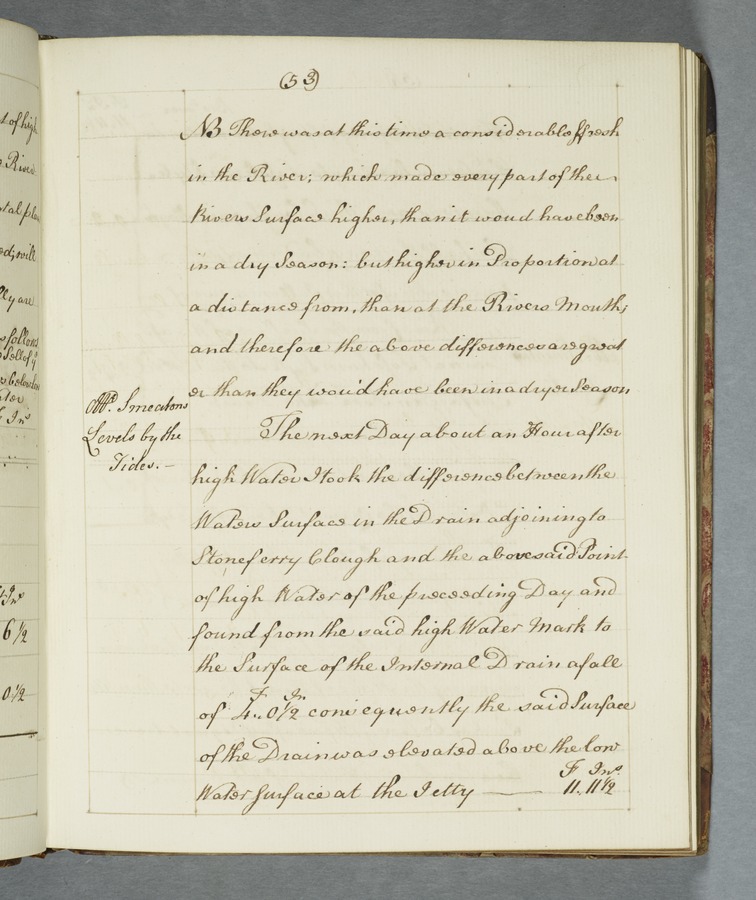 (53)
NB There was at this time a considerable ffresh
in the River; which made every part of the
Rivers Surface higher, than it woud have been
in a dry Season: but higher in Proportion at
a distance from, than at the Rivers Mouth;
and therefore the above differences are great
er than they wou'd have been in a dryer Season
Mr. Smeatons
Levels by the
Tides. —
The next Day about an Hour after
high Water I took the difference between the
Waters Surface in the Drain adjoining to
Stoneferry Clough and the abovesaid Point
of high Water of the preceeding Day and
found from the said high Water Mark to
the Surface of the Internal Drain a fall
F In
of 4..0 1/2 consequently the said Surface
of the Drain was elevated above the low
F Ins.
Water Surface at the Jetty —— 11. 11 1/2
t of high
e River
ntal pla
ed; will
lly are
s follows
below
ater
Ins
6 1/2
0 1/2